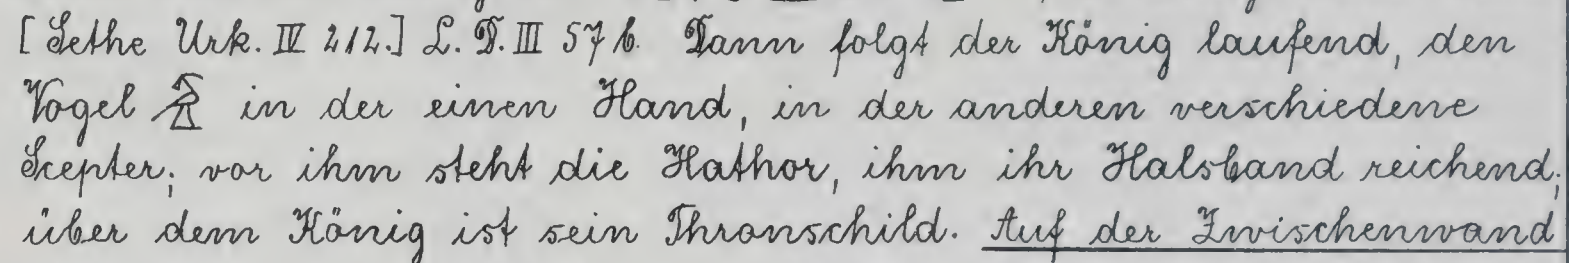 [Sethe Urk. IV 212.] L. D. III 57 b. Dann folgt der König laufend, den
Vogel in der einen Hand, in der anderen verschiedene
Scepter; vor ihm steht die Hathor, ihm ihr Halsband reichend;
über dem König ist sein Thronschild. Auf der Zwischenwand